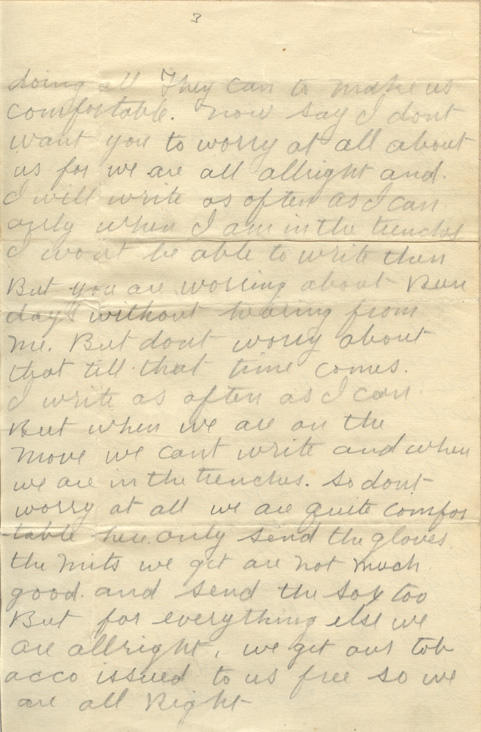 3
doing all They can to make us
comfortable. now say I dont
want you to worry at all about
us for we are all allright and.
I will write as often as I can
only when I am in the trenches
I wont be able to write then
But you are worring about
days without hearing from
me. But dont worry about
that till that time comes.
I write as often as I can
But when we are on the
move we cant write and when
we are in the trenches. So dont
worry at all we are quite comfor
-table here. only send the gloves
the mits we get are not much
good. and send the sox too
But for everything else we
are allright, we get our tob
acco issued to us free so we
are all Right